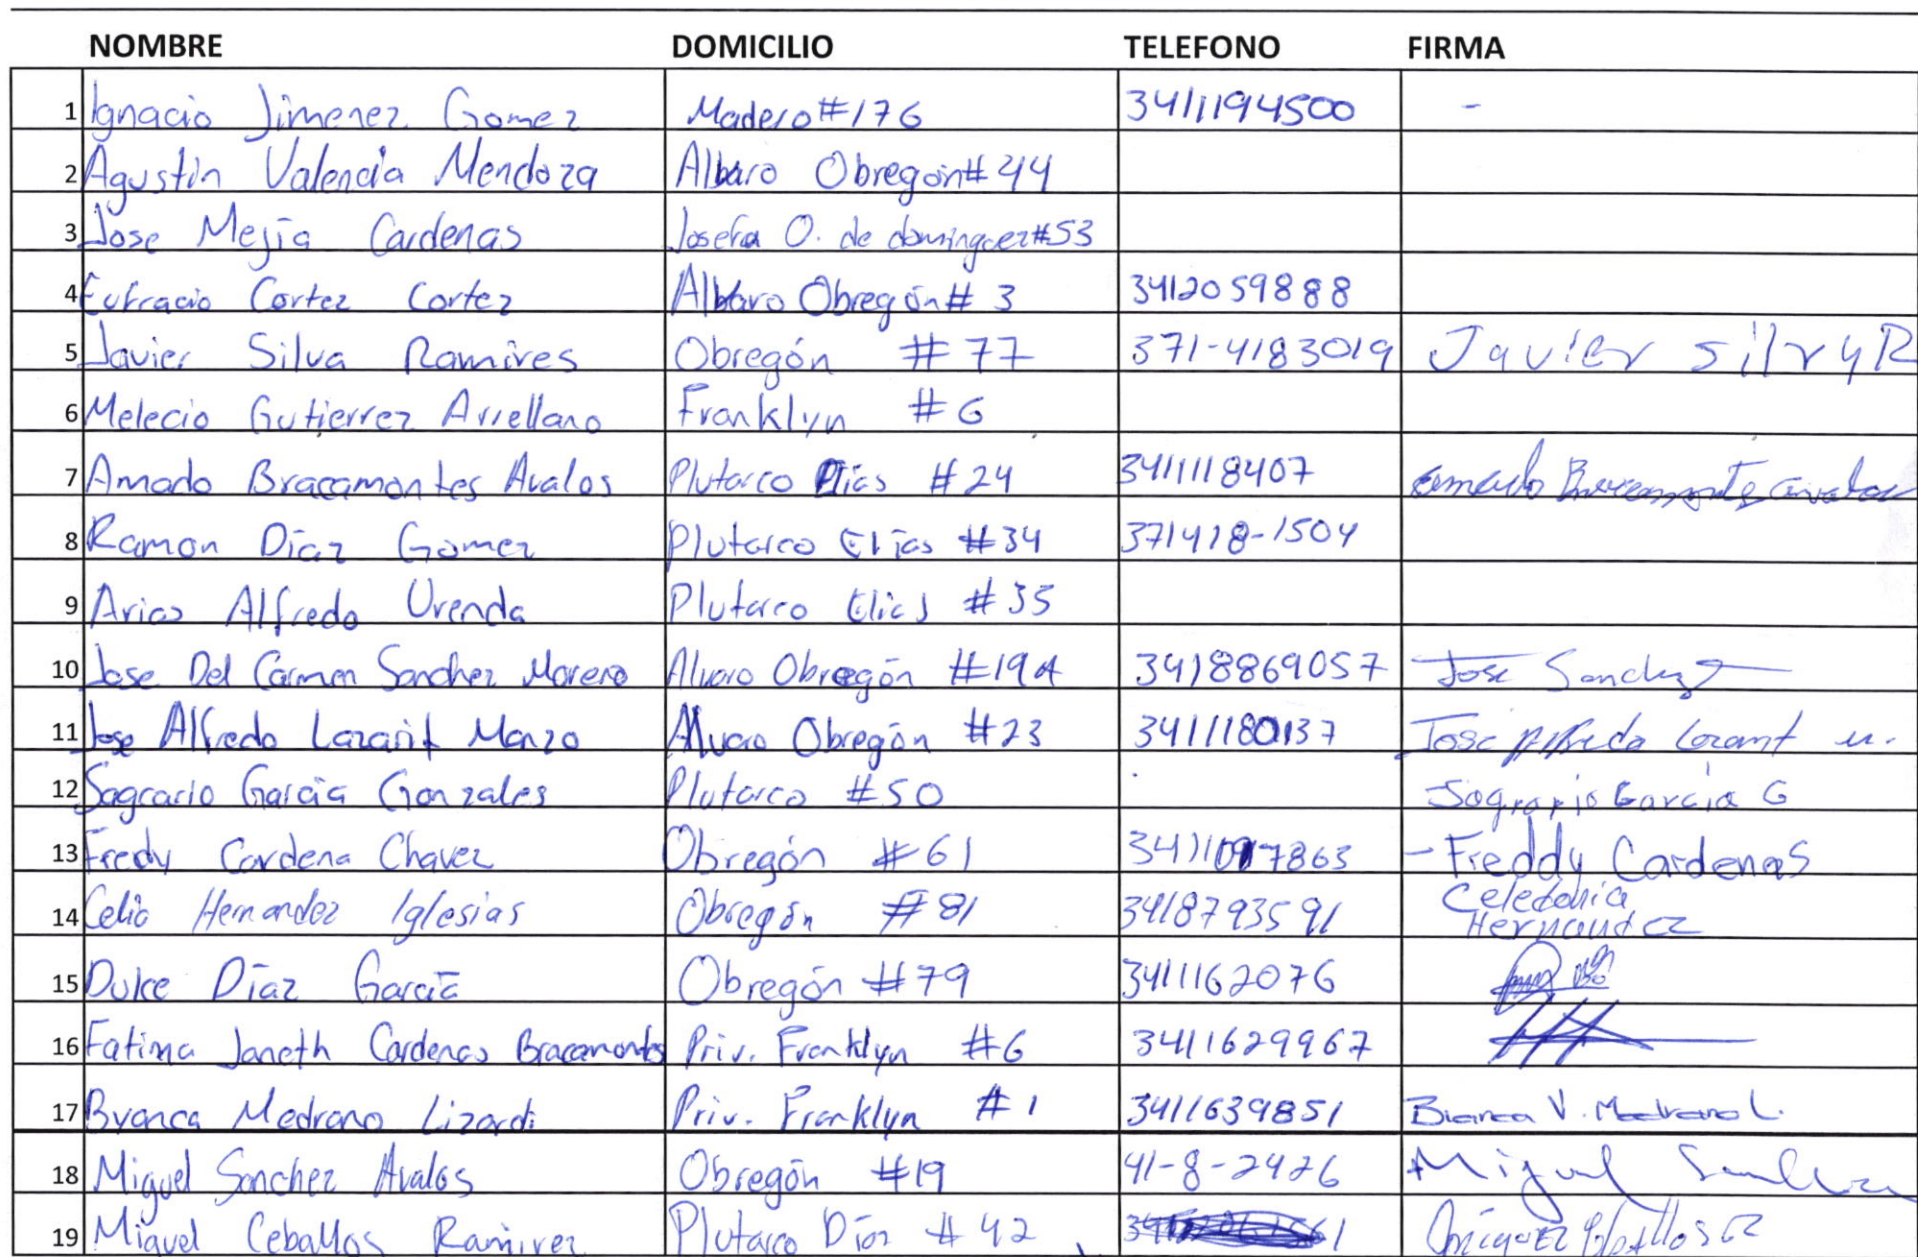 NOMBRE DOMICILIO TELEFONO FIRMA
1 Ignacio Jimenez Gomez Madero #176 3411194500 -
2 Agustin Valencia Mendoza Albaro Obregón #44
3 Jose Mejía Cardenas Josefa O. de dominguez #53
4 Eufracio Cortez Cortez Albaro Obregón # 3 3412059888
5 Javier Silva Ramires Obregón #77 371-4183019 Javier Silva R
6 Melecio Gutierrez Arrellano Franklyn #6
7 Amado Bracamontes Avalos Plutarco Elias #24 3411118407 amado Bracamontes avalos
8 Ramon Díaz Gomez Plutarco Elías #34 371418-1504
9 Arias Alfredo Urenda Plutarco Elias #35
10 Jose Del Carmen Sanchez Moreno Alvaro Obregón #19A 3418869057 Jose Sanchez
11 Jose Alfredo Lazarit Manzo Alvaro Obregón #23 3411180137 Jose Alfredo m.
12 Sagrario García Gonzales Plutarco #50 Sagrario Garcia G
13 Fredy Cardena Chavez Obregón #61 3411097863 - Freddy Cardenas
14 Celia Hernandez Iglesias Obregón #81 3418793591 Celedonia Hernandez
15 Dulce Díaz García Obregón #79 3411162076
16 Fatima Janeth Cardenas Bracamontes Priv. Franklyn #6 3411629967
17 Byanca Medrano Lizardi Priv. Franklyn #1 3411639851 Bianca V. Medrano L.
18 Miguel Sanchez Avalos Obregón #19 41-8-2426 Miguel Sanchez
19 Miguel Ceballos Ramirez Plutarco Días #42